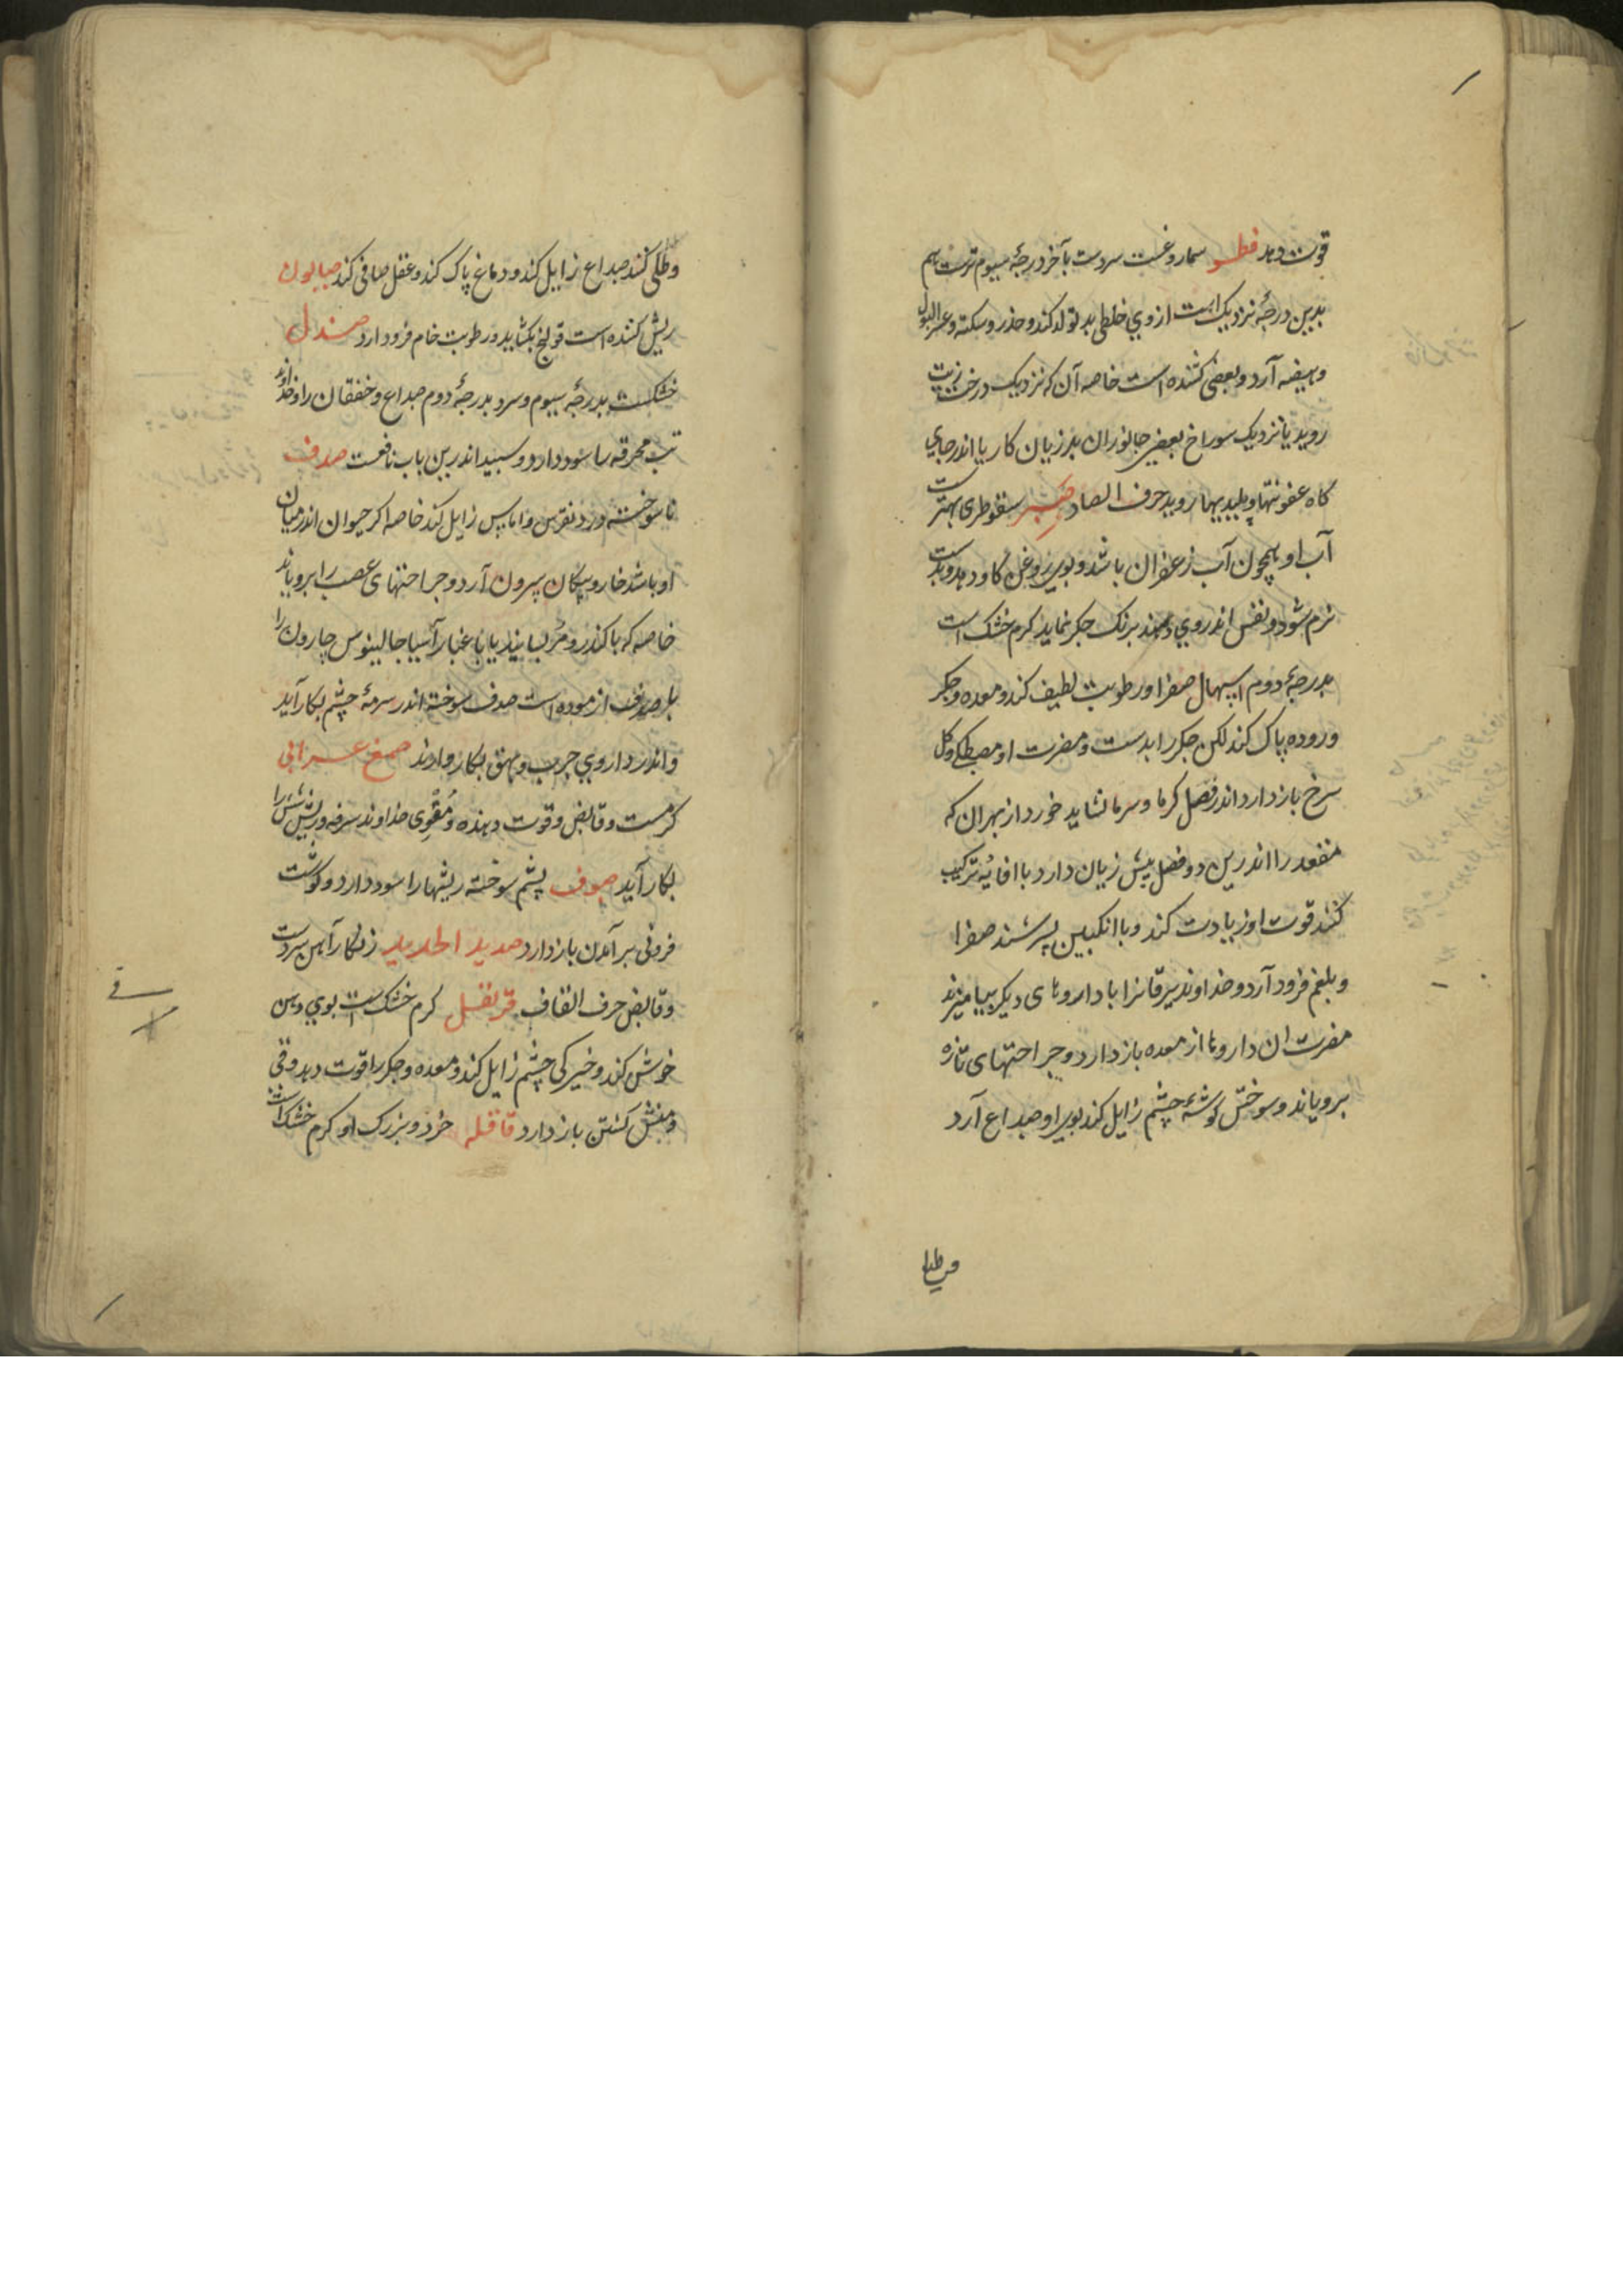 قوت دهد فطر سماروغست سردست بآخر درجهٔ سیوم ترست هم
بدین درجه نزدیک است از وی خلطی بد تولد کند و خدر و سکته و عسر البول
و هیضه آرد و بعضی کشنده است خاصه آن که نزدیک درخت زیت
روید یا نزدیک سوراخ بعضی جانوران بد زیان کار یا اندر جای
کاه عفونتها و پلیدیها روید حرف الصاد صبر سقوطری بهترست
آب او همچون آب زعفران باشد و بوی روغن کاو دهد و بدست
نرم شود و نفس اندر وی دهند برنک جکر نماید کرم خشک است
بدرجهٔ دوم اسهال صفرا و رطوبت لطیف کند و معده و جکر
و روده پاک کند لکن جکر را بدست و مضرت او مصطکی و کل
سرخ باز دارد اندر فصل کرما و سرما نشاید خورد از بهر ان که
مقعد را اندرین دو فصل بیش زیان دارد با افاویه ترکیب
کنند قوت او زیادت کند و با انکبین بسرشند صفرا
و بلغم فرود آرد و خداوند یرقانرا با داروهای دیکر بیامیزند
مضرت ان داروها از معده باز دارد و جراحتهای تازه
برویاند و سوختن کوشهٔ چشم زایل کند بوی او صداع آرد
و طلی کنند صداع زایل کند و دماغ پاک کند و عقل صافی کند صابون
ریش کننده است قولنج بکشاید و رطوبت خام فرود ارد صندل
خشکست بدرجهٔ سیوم و سرد بدرجهٔ دوم صداع و خفقان را و خداوند
تب محرقه را سود دارد و سپید اندرین باب نافعست صدف
نا سوخته درد نقرس و اماس زایل کند خاصه اکر حیوان اندر میان
او باشد خار و پیکان بیرون آرد و جراحتهای عصب را برویاند
خاصه که با کندر و مر بسایند یا با غبار آسیا جالینوس چارون را
با صدف ازموده است صدف سوخته اندر سرمهٔ چشم بکار آید
و اندر داروی جرب و بهق بکار دارند صمغ عربی
کرمست و قابض و قوت دهنده و مقوی خداوند سرفه و ریش شش را
بکار آید صوف پشم سوخته ریشها را سود دارد و کوشت
فزونی برآمدن باز دارد صدید الحدید زنکار آهن سردست
و قابض حرف القاف قرنفل کرم خشکست بوی دهن
خوش کند و خیرکی چشم زایل کند و معده و جکر را قوت دهد و قی
و منش کشتن باز دارد قاقله خرد و بزرک او کرم خشک است
و طلی